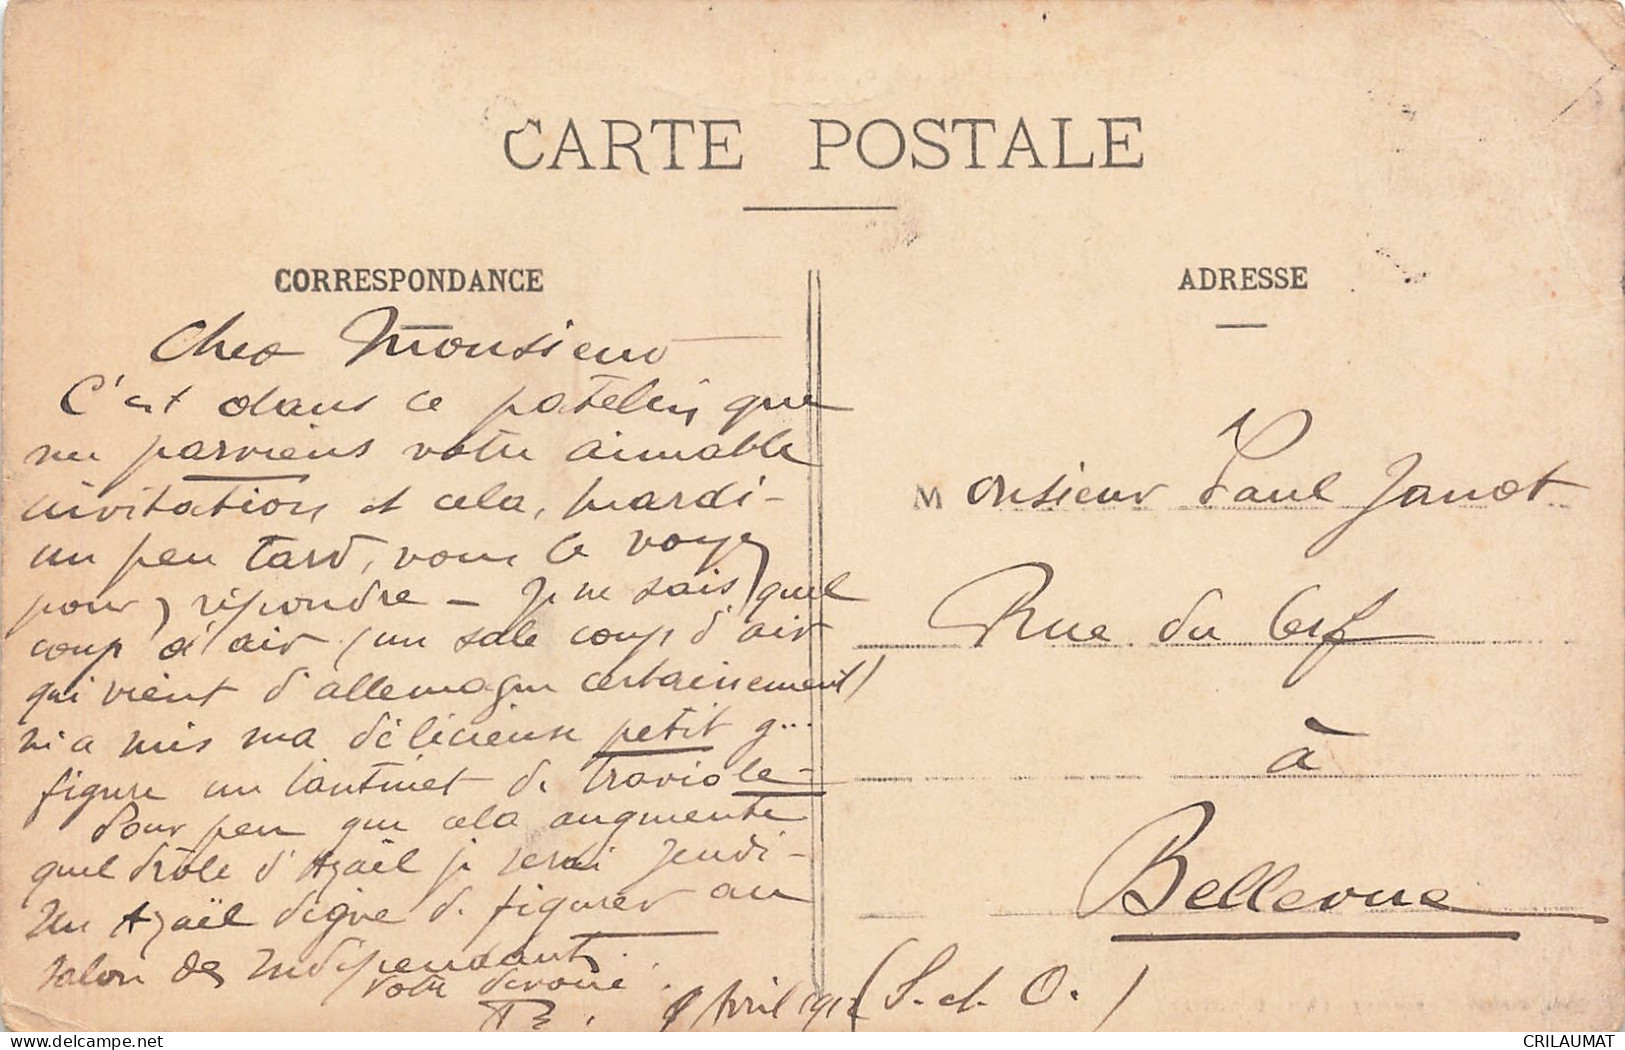 CARTE POSTALE
CORRESPONDANCE
Cher Monsieur
C'est dans ce patelin que
me parviens votre aimable
invitation et cela, mardi -
un peu tard, vous le voyez
pour y répondre - Je ne sais quel
coup d'air (un sale coup d'air
qui vient d'allemagne certainement)
m'a mis ma délicieuse petit g...
figure un tantinet de traviole -
Pour peu que cela augmente
quel drôle d'Azaël je serai Jeudi -
Un Azaël digne de figurer au
salon des Indépendants.
votre dévoué.
Avril
ADRESSE
Monsieur Paul Janot
Rue du Cerf
à
Bellevue
(S. et O.)
CRILAUMAT